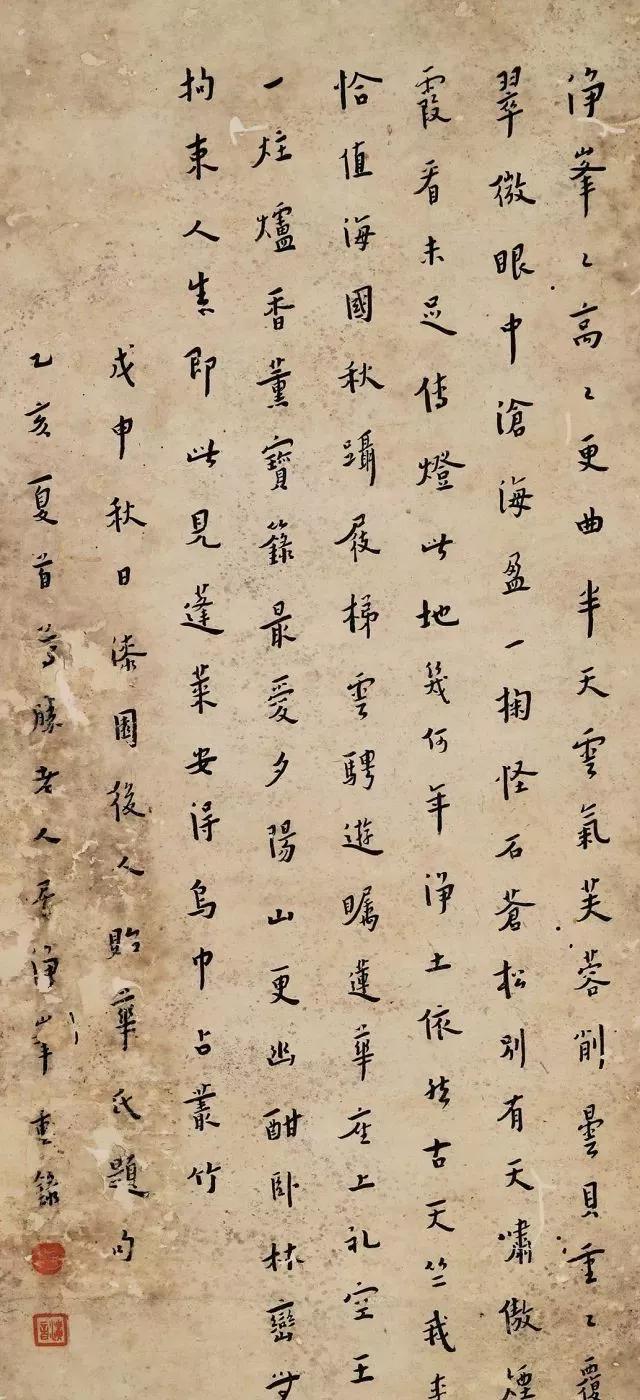 淨峯々高々更曲半天雲氣芙蓉削曇貝重々覆
翠微眼中滄海盈一掬怪石蒼松別有天嘯傲煙
霞看未足傳燈此地幾何年淨土依然古天竺我来
恰值海國秋躡屐梯雲騁遊矚蓮華座上礼空王
一炷爐香薰寶籙最愛夕陽山更幽酣卧林巒無
拘束人生即此見蓬萊安得烏巾占叢竹
戊申秋日漆園後人貽華氏題句
乙亥夏首尊勝老人居淨峯重錄